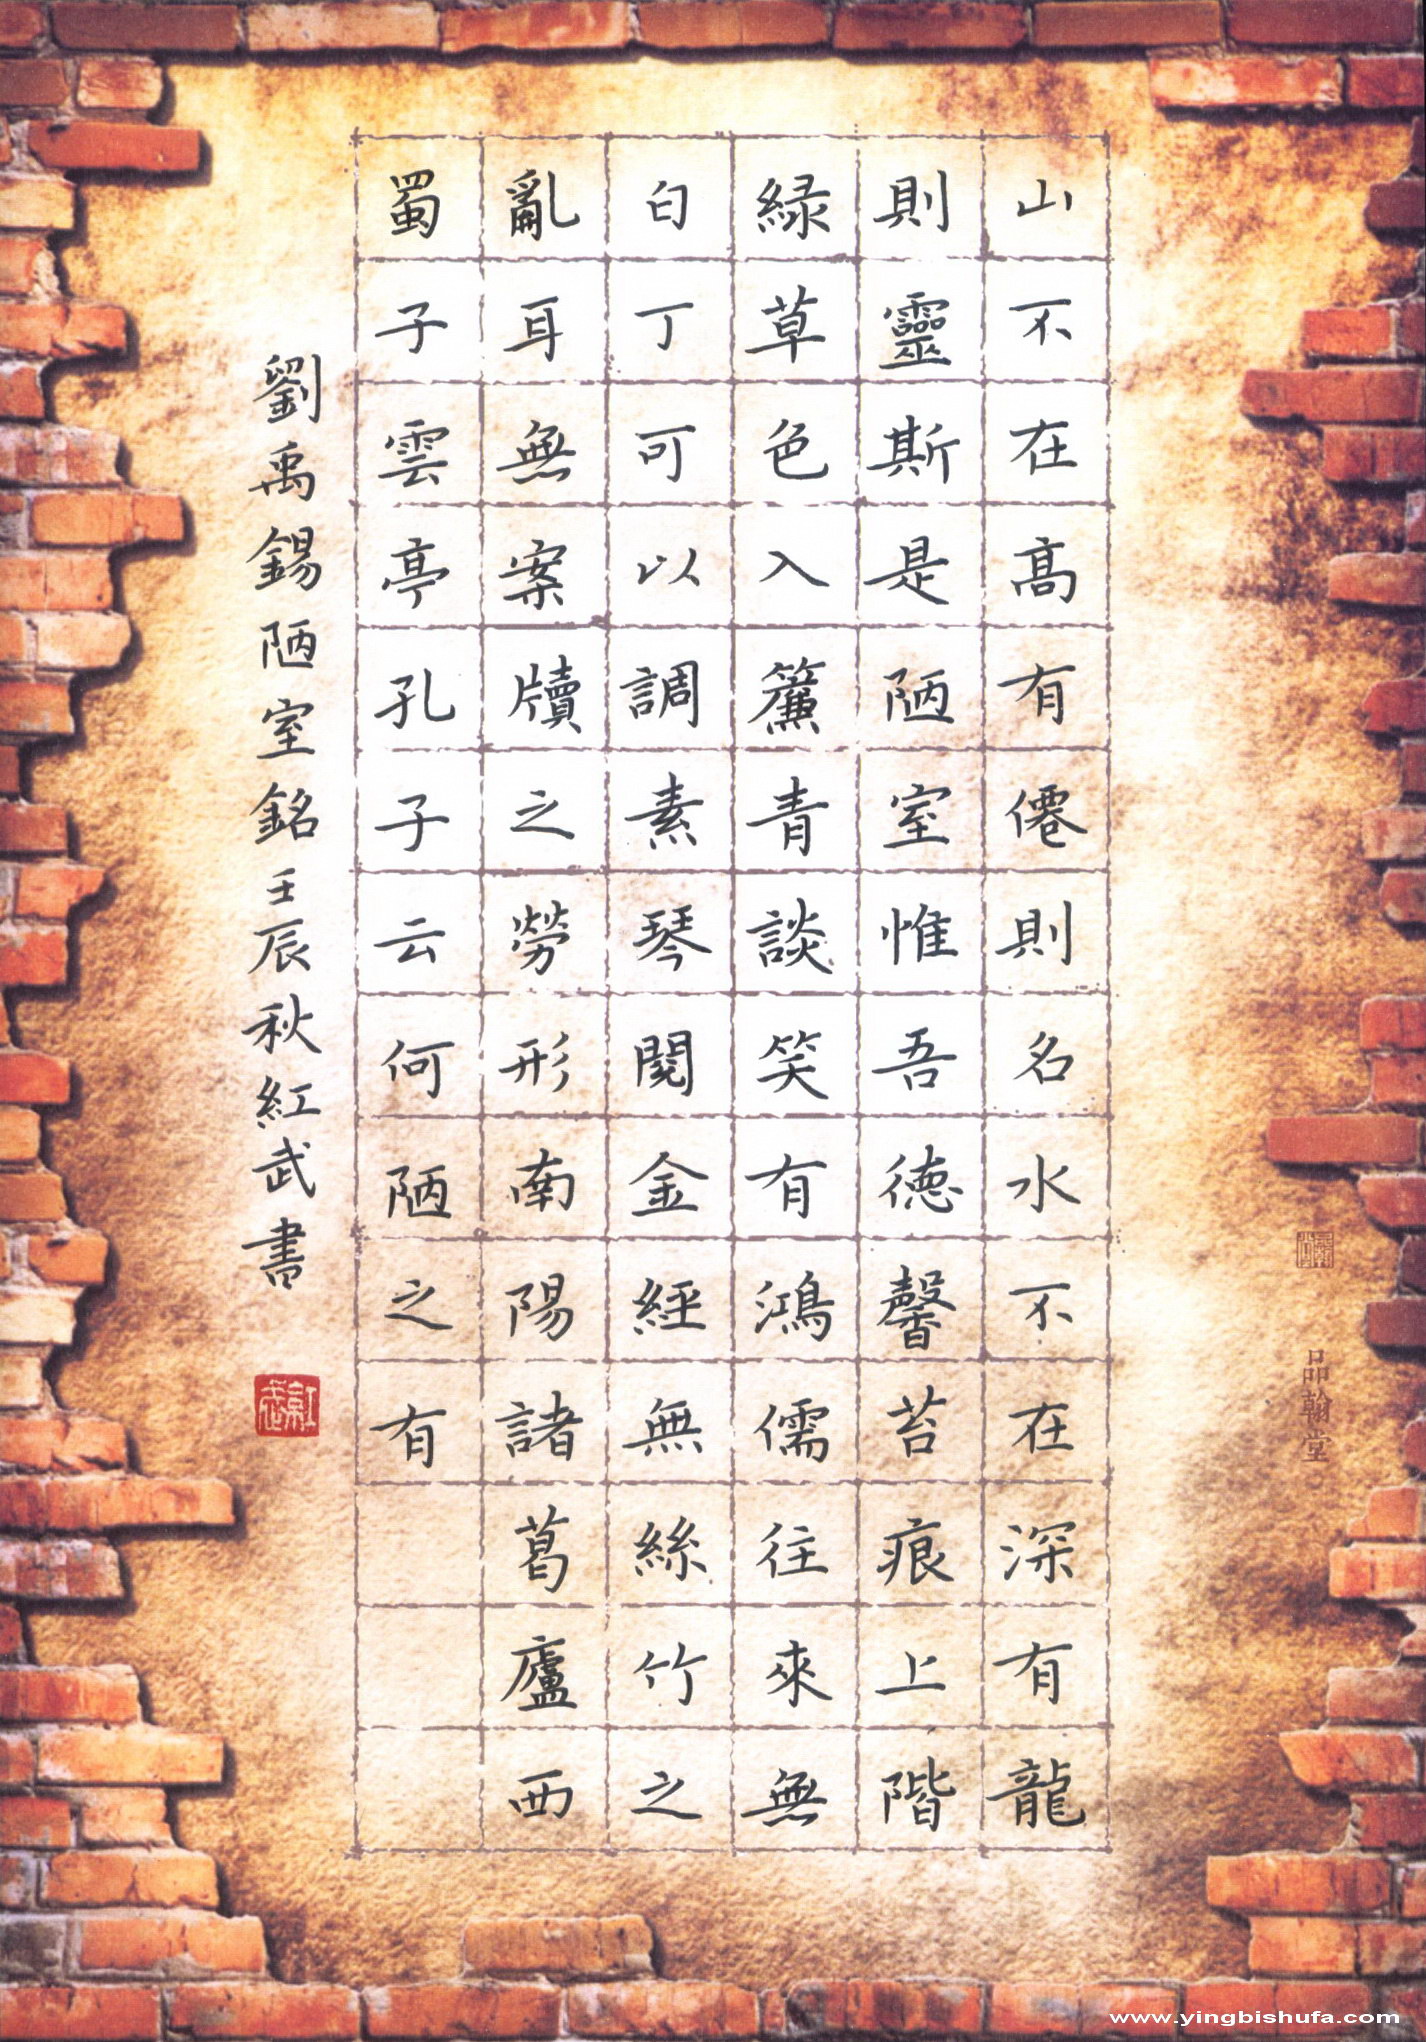 山不在高有僊則名水不在深有龍
則靈斯是陋室惟吾德馨苔痕上階
緑草色入簾青談笑有鴻儒往來無
白丁可以調素琴閲金經無絲竹之
亂耳無案牘之勞形南陽諸葛廬西
蜀子雲亭孔子云何陋之有
劉禹錫陋室銘壬辰秋紅武書
紅武
品翰堂
www.yingbishufa.com